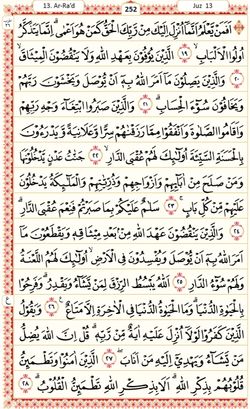 13. Ar-Ra'd
252
Juz 13
اَفَمَنْ يَّعْلَمُ اَنَّمَآ اُنْزِلَ اِلَيْكَ مِنْ رَّبِّكَ الْحَقُّ كَمَنْ هُوَ اَعْمٰىۗ اِنَّمَا يَتَذَكَّرُ
اُولُوا الْاَلْبَابِۙ ١٩ الَّذِيْنَ يُوْفُوْنَ بِعَهْدِ اللّٰهِ وَلَا يَنْقُضُوْنَ الْمِيْثَاقَۙ
٢٠ وَالَّذِيْنَ يَصِلُوْنَ مَآ اَمَرَ اللّٰهُ بِهٖٓ اَنْ يُّوْصَلَ وَيَخْشَوْنَ رَبَّهُمْ
وَيَخَافُوْنَ سُوْۤءَ الْحِسَابِۗ ٢١ وَالَّذِيْنَ صَبَرُوا ابْتِغَاۤءَ وَجْهِ رَبِّهِمْ
وَاَقَامُوا الصَّلٰوةَ وَاَنْفَقُوْا مِمَّا رَزَقْنٰهُمْ سِرًّا وَّعَلَانِيَةً وَّيَدْرَءُوْنَ
بِالْحَسَنَةِ السَّيِّئَةَ اُولٰۤىِٕكَ لَهُمْ عُقْبَى الدَّارِۙ ٢٢ جَنّٰتُ عَدْنٍ يَّدْخُلُوْنَهَا
وَمَنْ صَلَحَ مِنْ اٰبَاۤىِٕهِمْ وَاَزْوَاجِهِمْ وَذُرِّيّٰتِهِمْ وَالْمَلٰۤىِٕكَةُ يَدْخُلُوْنَ
عَلَيْهِمْ مِّنْ كُلِّ بَابٍۚ ٢٣ سَلٰمٌ عَلَيْكُمْ بِمَا صَبَرْتُمْ فَنِعْمَ عُقْبَى الدَّارِۗ
٢٤ وَالَّذِيْنَ يَنْقُضُوْنَ عَهْدَ اللّٰهِ مِنْۢ بَعْدِ مِيْثَاقِهٖ وَيَقْطَعُوْنَ مَآ
اَمَرَ اللّٰهُ بِهٖٓ اَنْ يُّوْصَلَ وَيُفْسِدُوْنَ فِى الْاَرْضِۙ اُولٰۤىِٕكَ لَهُمُ اللَّعْنَةُ
وَلَهُمْ سُوْۤءُ الدَّارِ ٢٥ اَللّٰهُ يَبْسُطُ الرِّزْقَ لِمَنْ يَّشَاۤءُ وَيَقْدِرُۗ وَفَرِحُوْا
بِالْحَيٰوةِ الدُّنْيَاۗ وَمَا الْحَيٰوةُ الدُّنْيَا فِى الْاٰخِرَةِ اِلَّا مَتَاعٌ ٢٦ وَيَقُوْلُ
الَّذِيْنَ كَفَرُوْا لَوْلَآ اُنْزِلَ عَلَيْهِ اٰيَةٌ مِّنْ رَّبِّهٖۗ قُلْ اِنَّ اللّٰهَ يُضِلُّ
مَنْ يَّشَاۤءُ وَيَهْدِيْٓ اِلَيْهِ مَنْ اَنَابَۖ ٢٧ الَّذِيْنَ اٰمَنُوْا وَتَطْمَىِٕنُّ
قُلُوْبُهُمْ بِذِكْرِ اللّٰهِۗ اَلَا بِذِكْرِ اللّٰهِ تَطْمَىِٕنُّ الْقُلُوْبُۗ ٢٨